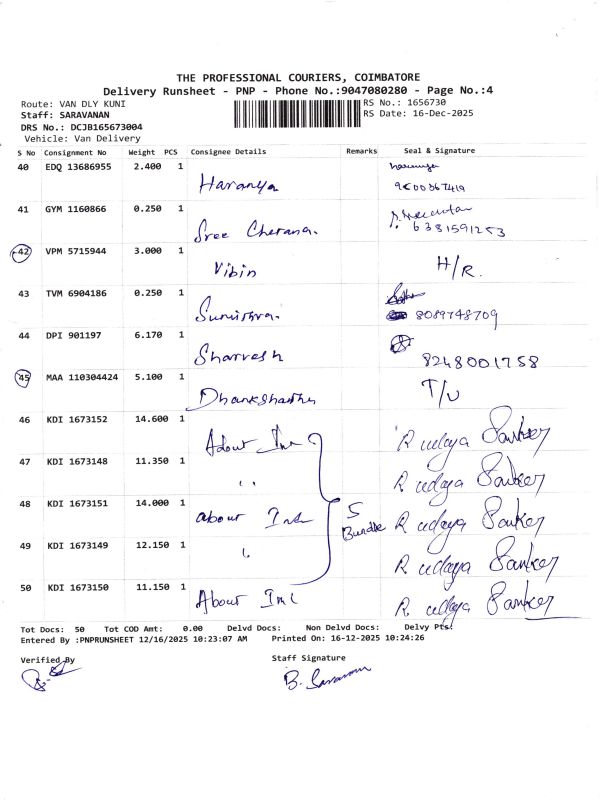 THE PROFESSIONAL COURIERS, COIMBATORE
Delivery Runsheet - PNP - Phone No.:9047080280 - Page No.:4
Route: VAN DLY KUNI
RS No.: 1656730
Staff: SARAVANAN
RS Date: 16-Dec-2025
DRS No.: DCJB165673004
Vehicle: Van Delivery
S No Consignment No Weight PCS Consignee Details Remarks Seal & Signature
40 EDQ 13686955 2.400 1 Haranya
41 GYM 1160866 0.250 1 Sree Cherana. 6381591253
42 VPM 5715944 3.000 1 Vibin H/R.
43 TVM 6904186 0.250 1 8089748709
44 DPI 901197 6.170 1 Sharvesh 8248001758
45 MAA 110304424 5.100 1 T/U
46 KDI 1673152 14.600 1 About Inc R udaya Sanker
47 KDI 1673148 11.350 1 " R udaya Sanker
48 KDI 1673151 14.000 1 about Inc 5 Bundle R udaya Sanker
49 KDI 1673149 12.150 1 " R udaya Sanker
50 KDI 1673150 11.150 1 About Inc R udaya Sanker
Tot Docs: 50 Tot COD Amt: 0.00 Delvd Docs: Non Delvd Docs: Delvy Pts:
Entered By :PNPRUNSHEET 12/16/2025 10:23:07 AM Printed On: 16-12-2025 10:24:26
Verified By Staff Signature
B. Saravanan